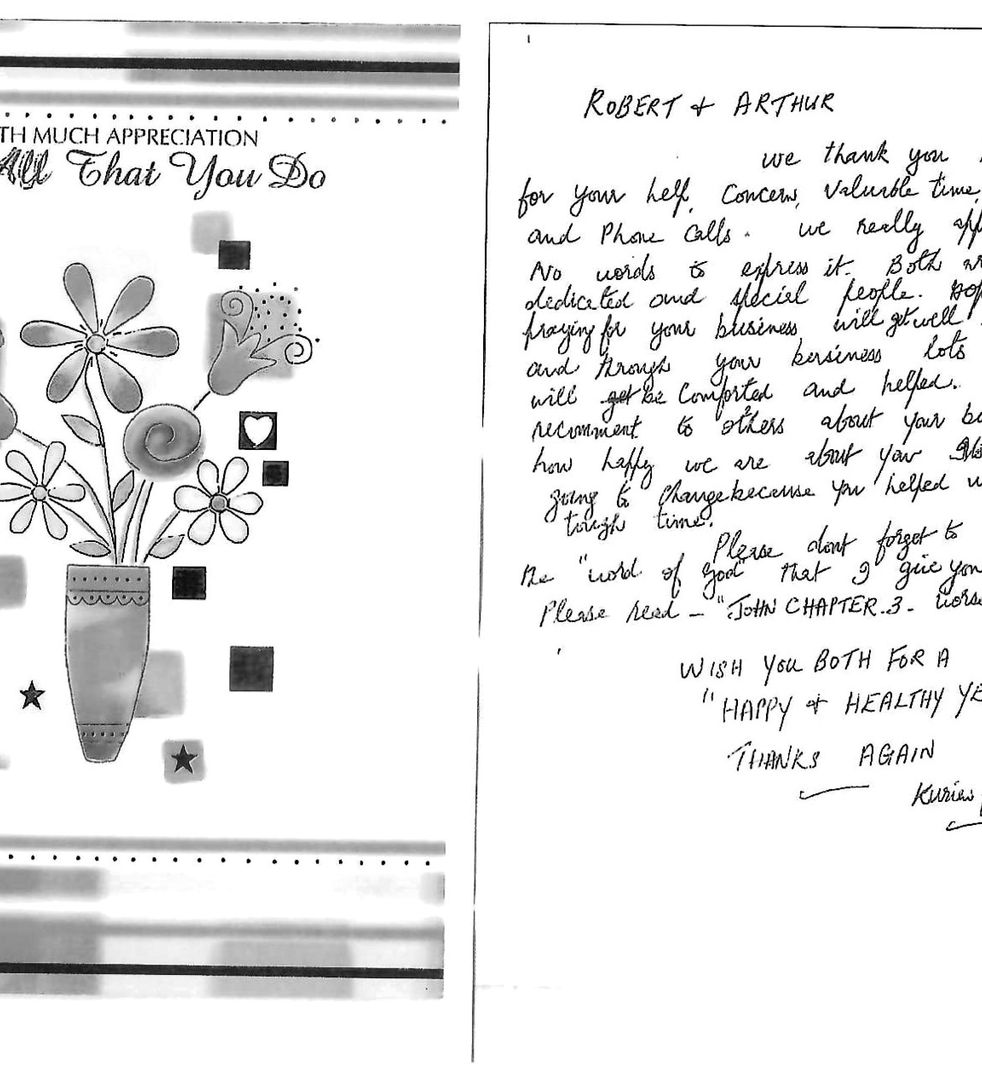 TH MUCH APPRECIATION
All That You Do
ROBERT & ARTHUR
we thank you
for your help, Concern, Valuable time,
and Phone Calls. we really app
No words to express it. Both ar
dedicated and special people.
praying for your business will get well
and through your bersiness lots
will be Comforted and helped.
recomment to others about your bu
how happy we are about you
going to change because you helped u
tough time.
Please dont forget to
the "word of God" that I give you
Please read - "JOHN CHAPTER-3-
WISH YOU BOTH FOR A
"HAPPY & HEALTHY YE
THANKS AGAIN
Kurien